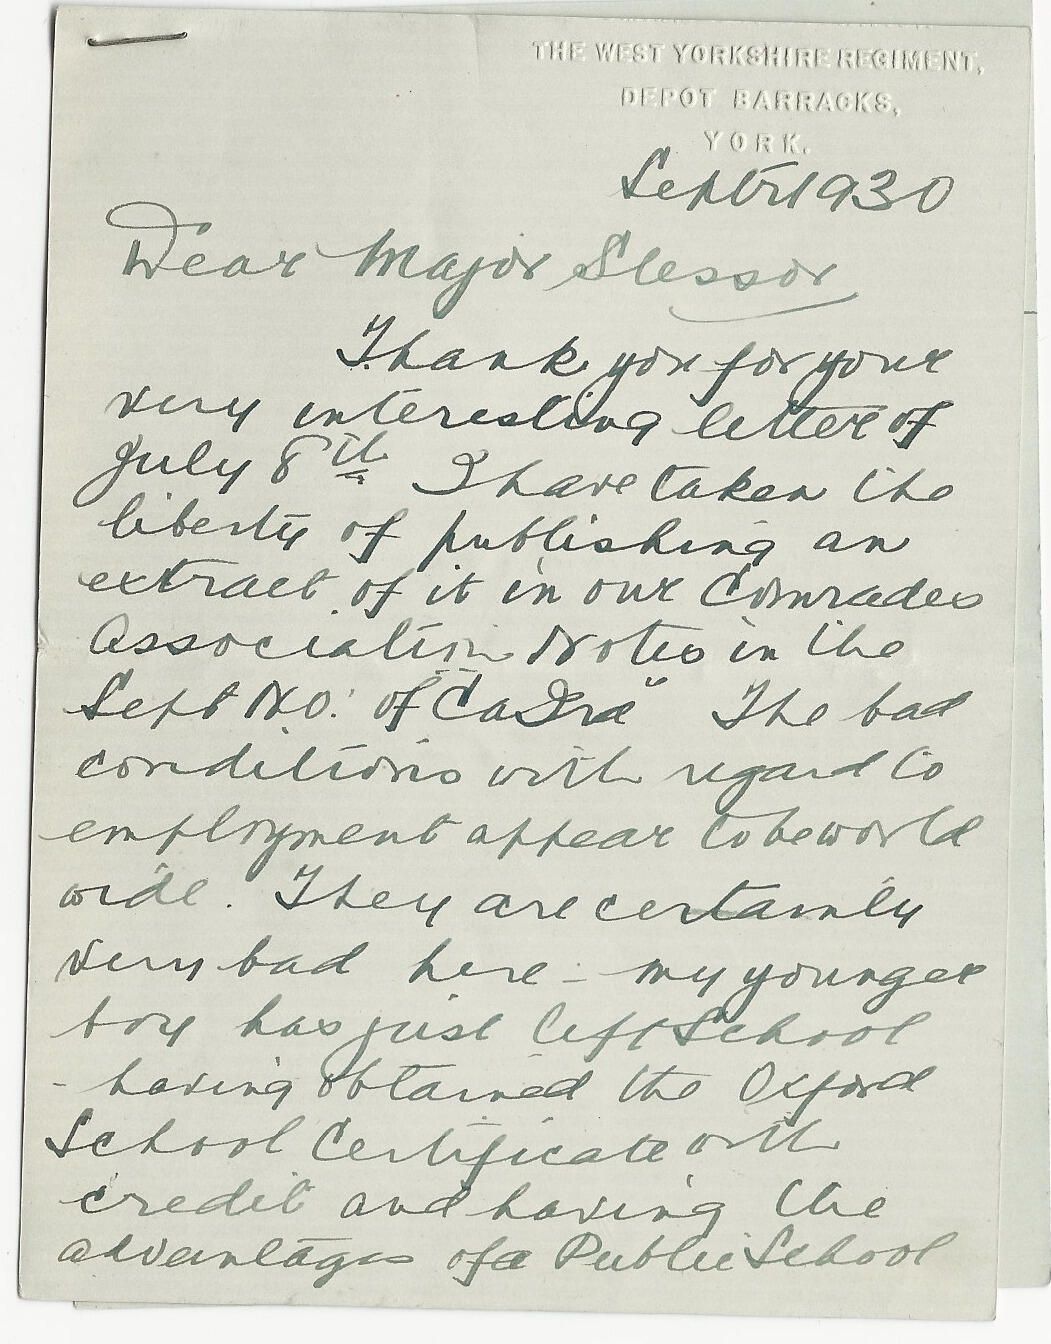 THE WEST YORKSHIRE REGIMENT,
DEPOT BARRACKS,
YORK.
Septr 1930
Dear Major Slessor
Thank you for your
very interesting letter of
July 8th I have taken the
liberty of publishing an
extract of it in our Comrades
Association Notes in the
Sept No. of "Ca Ira" The bad
conditions with regard to
employment appear to be world
wide. They are certainly
very bad here - my younger
boy has just left School
- having obtained the Oxford
School Certificate with
credit and having the
advantages of a Public School